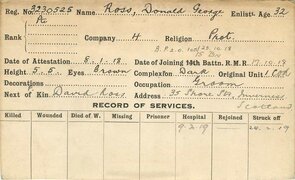 Reg. No. 3230525 Name Ross, Donald George Enlist- Age 32
Rank Pte Company H. Religion Prot
B.P.2.0. 10.10
Date of Attestation 5.1.18 Date of Joining 14th Battn. R.M.R. 10.19
Height 5.5. Eyes Brown Complexion Dark Original Unit 1 C.O.R.
Decorations Occupation Groom
Next of Kin David Ross Address 35 Shore Str. Inverness
Scotland
RECORD OF SERVICES.
Killed Wounded Died of W. Missing Prisoner Hospital Rejoined Struck off
9.2.19 24.2.19